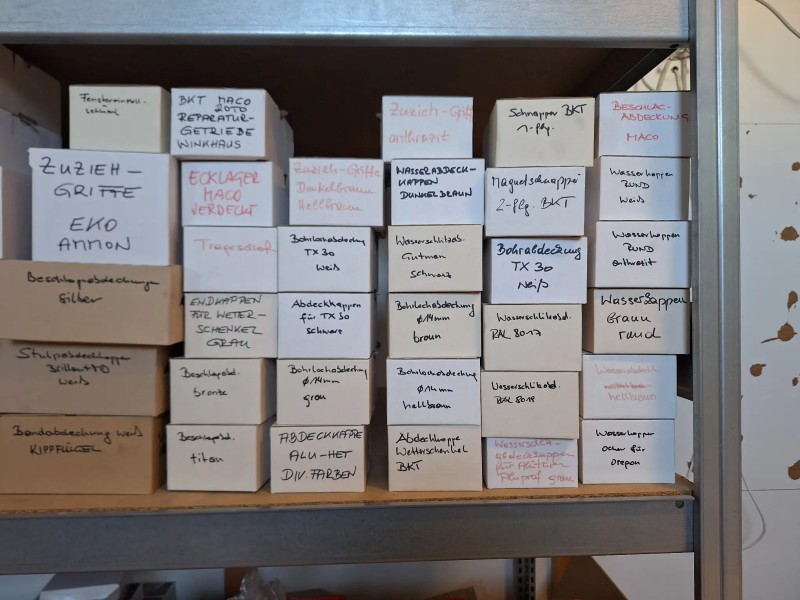 BKT MACO
ROTO
REPARATUR-
GETRIEBE
WINKHAUS
ZUZIEH-
GRIFFE
EKO
AMMON
Beschlagabdeckungen
silber
Stulpabdeckkappen
weiß
Bandabdeckung weiß
KIPPFLÜGEL
ECKLAGER
MACO
VERDECKT
ENDKAPPEN
FÜR WETER-
SCHENKEL
GRAU
Beschlagabd.
bronze
Beschlagabd.
titan
Zuzieh-Griffe
Dunkelbraun
Hellbraun
Bohrlochabdeckung
TX 30
weiß
Abdeckkappen
für TX 30
schwarz
Bohrlochabdeckung
Ø14mm
grau
ABDECKKAPPE
ALU-HET
DIV. FARBEN
Zuzieh-Griff
anthrazit
WASSERABDECK-
KAPPEN
DUNKELBRAUN
Wasserschlitzab.
Gutman
schwarz
Bohrlochabdeckung
Ø14mm
braun
Bohrlochabdeckung
Ø14mm
hellbraun
Abdeckkappe
Wetterschenkel
BKT
Schnapper BKT
1-flg.
Magnetschnapper
2-flg. BKT
Bohrabdeckung
TX 30
Weiß
Wasserschlitzabd.
RAL 8017
Wasserschlitzabd.
RAL 8019
grau
BESCHLAG-
ABDECKUNG
MACO
Wasserkappen
RUND
weiß
Wasserkappen
RUND
anthrazit
Wasserkappen
braun
rund
hellbraun
Wasserkappen
Ocker für
Oregon